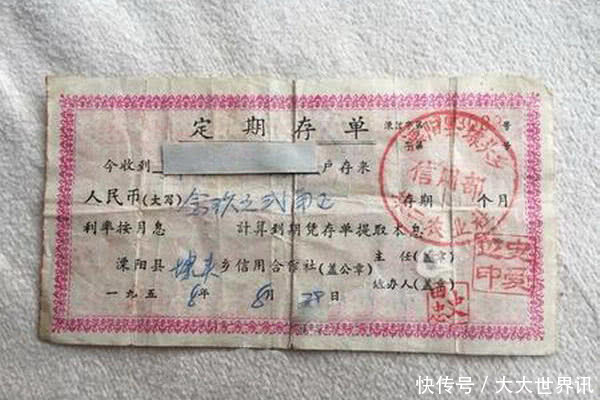 定期存单
今收到 户存来
人民币(大写) 玖元贰角正 存期 个月
利率按月息 计算到期凭存单提取本息
溧阳县 埭头 乡信用合作社(盖公章) 主任(盖章)
经办人(盖章)
一九五8年8月28日
信用部
农业社
快传号/大大世界讯